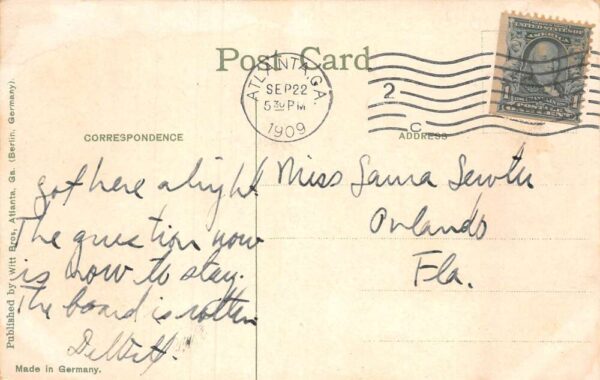 Post Card
ATLANTA, GA.
SEP 22
5 30 PM
1909
2
C
UNITED STATES OF
AMERICA
CORRESPONDENCE
ADDRESS
got here alright
The question now
is how to stay.
The board is rotten
Miss Laura
Orlando
Fla.
Published by Witt Bros, Atlanta, Ga. (Berlin, Germany).
Made in Germany.